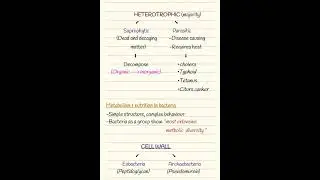 HETEROTROPHIC (majority)
Saprophytic Parasitic
(Dead and decaying -Disease causing
matter) -Requires host
Decompose •cholera
(Organic → inorganic) •Typhoid
•Tetanus
•Citrus canker
Metabolism & nutrition in bacteria
-Simple structure, complex behaviour
-Bacteria as a group show "most extensive
metabolic diversity"
CELL WALL
Eubacteria Archaebacteria
(Peptidoglycan) (Pseudomurein)